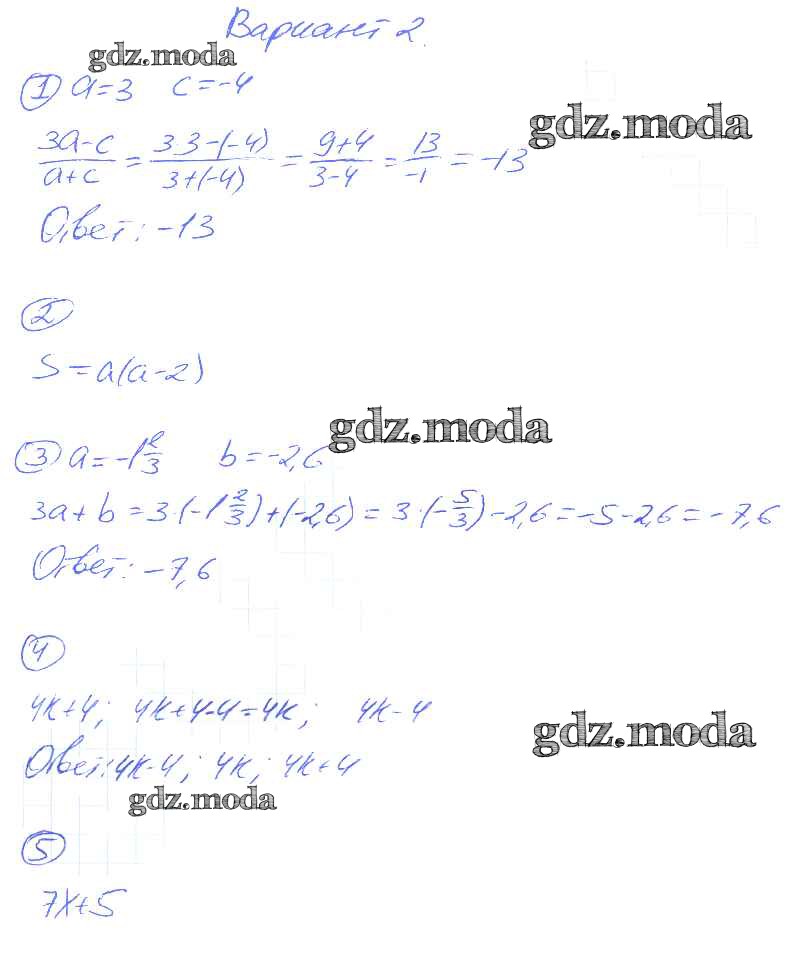 Вариант 2.
gdz.moda
① a=3 c=-4
gdz.moda
(3a-c)/(a+c) = (3·3-(-4))/(3+(-4)) = (9+4)/(3-4) = 13/-1 = -13
Ответ: -13
②
S=a(a-2)
gdz.moda
③ a=-1 2/3 b=-2,6
3a+b=3·(-1 2/3)+(-2,6)=3·(-5/3)-2,6=-5-2,6=-7,6
Ответ: -7,6
④
4k+4; 4k+4-4=4k; 4k-4
gdz.moda
Ответ: 4k-4; 4k; 4k+4
gdz.moda
⑤
7x+5